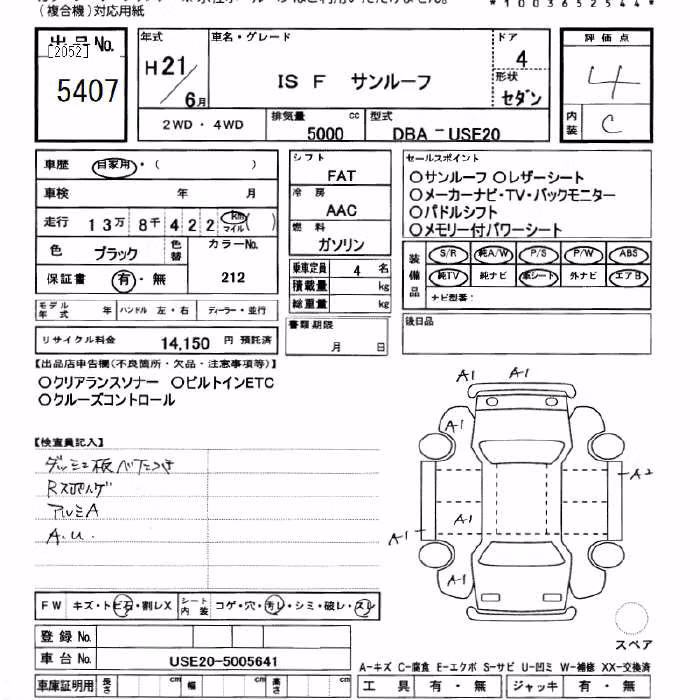 (複合機)対応用紙
*1003652544*
出品No.
[2052]
5407
年式
H21/6月
車名・グレード
IS F サンルーフ
ドア
4
形状
セダン
評価点
4
内装
C
2WD・4WD
排気量
5000
cc
型式
DBA－USE20
車歴
自家用・( )
車検 年 月
走行 13万 8千 4 2 2 Km マイル ( )
色 ブラック
色替
カラーNo.
212
保証書 有・無
モデル年式 年
ハンドル 左・右
ディーラー・並行
リサイクル料金 14,150 円 預託済
シフト
FAT
冷房
AAC
燃料
ガソリン
乗車定員 4 名
積載量 kg
総重量 kg
書類期限
月 日
セールスポイント
○サンルーフ ○レザーシート
○メーカーナビ・TV・バックモニター
○パドルシフト
○メモリー付パワーシート
装備品
S/R 純A/W P/S P/W ABS
純TV 純ナビ 革シート 外ナビ エアB
ナビ型番:
後日品
【出品店申告欄(不良箇所・欠品・注意事項等)】
○クリアランスソナー ○ビルトインETC
○クルーズコントロール
【検査員記入】
ダッシュ板ベタつき
アルミA
A.U.
A1 A1
A1
A2
A1
A1
A1
FW キズ・トビ石・割レX
シート内装 コゲ・穴・汚レ・シミ・破レ・スレ
登録No.
車台No. USE20-5005641
車庫証明用 長さ cm 幅 cm 高さ cm
スペア
A-キズ C-腐食 E-エクボ S-サビ U-凹ミ W-補修 XX-交換済
工具 有・無 ジャッキ 有・無